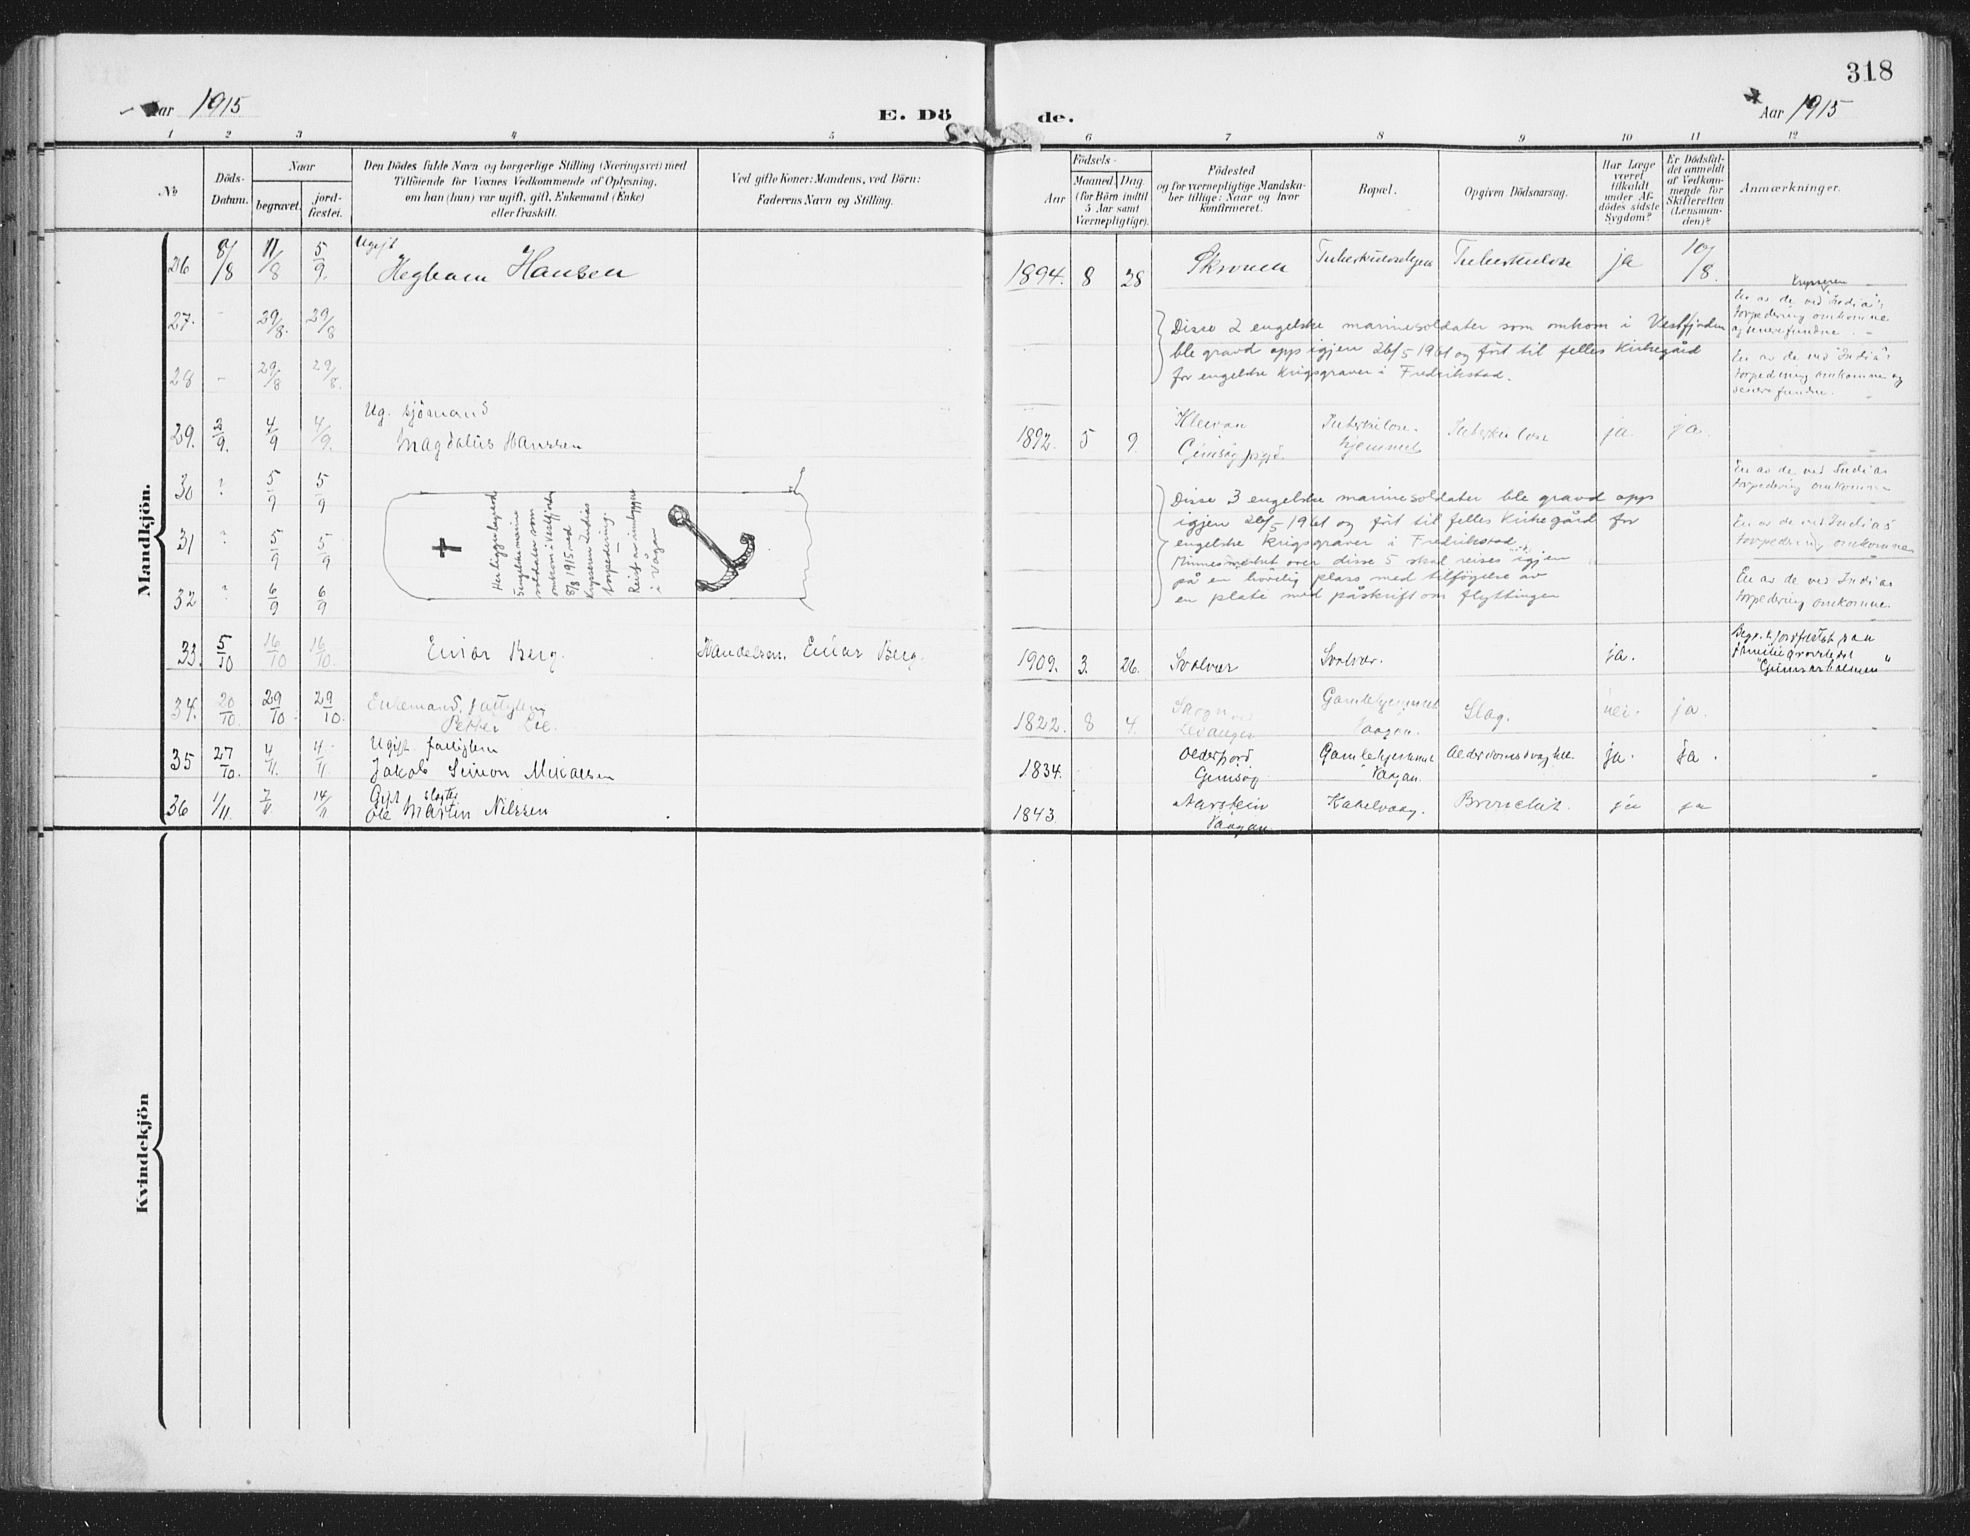 318
Aar 1915
E. Dö
de.
Aar 1915
1 2 3 4 5 6 7 8 9 10 11 12
No
Döds-
Datum.
Naar
begravet.
jord-
fæstet.
Den Dödes fulde Navn og borgerlige Stilling (Næringsvei) med
Tilföiende for Voxnes Vedkommende af Oplysning,
om han (hun) var ugift, gift, Enkemand (Enke)
eller fraskilt.
Ved gifte Koner: Mandens, ved Börn:
Faderens Navn og Stilling.
Födsels-
Aar
Maaned. Dag.
(for Börn indtil
5 Aar samt
Værnepligtige).
Födested
og for værnepligtige Mandska-
ber tillige: Naar og hvor
konfirmeret.
Bopæl.
Opgiven Dödsaarsag.
Har Læge
været
tilkaldt
under Af-
dödes sidste
Sygdom?
Er Dödsfal-
det anmeldt
af Vedkom-
mende for
Skifteretten
(Lensman-
den)?
Anmærkninger.
Mandkjön.
26 8/8 11/8 5/9 Ugift
Hansen 1894. 8 28 Tuberkulose ja 10/8.
27. - 29/8 29/8
Krysseren
En av de ved "India's
torpedering omkomne
28 - 29/8 29/8.
Disse 2 engelske marinesoldater som omkom i Vestfjorden
ble gravd opp igjen 26/5 1961 og fört til felles kirkegård
for engelske krigsgraver i Fredrikstad.
En av de ved "India's
torpedering omkomne og
senere fundne.
29. 4/9 4/9 Ug. sjömand
Magdalus Hanssen 1892. 5 9. Tuberkulose-
hjemmet Tuberkulose ja. ja.
30 ? 5/9 5/9
En av de ved Indias
torpedering omkomne
31 ? 5/9 5/9
En av de ved Indias
torpedering omkomne
32 ? 6/9 6/9
En av de ved Indias
torpedering omkomne.
Her ligger begravd
5 engelske marine
soldater som
omkom i Vestfjorden
8/8 1915 ved
krysseren Indias
torpedering.
Reist av innbyggere
i Vågan
Disse 3 engelske marinesoldater ble gravd opp
igjen 26/5 1961 og fört til felles kirkegård for
engelske krigsgraver i Fredrikstad.
Minnesmerket over disse 5 skal reises igjen
på en hövelig plass med tilföyelse av
en plate med påskrift om flyttingen
33. 5/10 16/10 16/10. Einar Berg. Handelsm. Einar Berg. 1909. 3. 26. Svolvær Svolvær. ja.
Begr. & jordfæstet paa
familiegravstedet
"Gunnarholmen"
34. 20/10. 29/10 29/10. Enkemand,
Petter 1822. 8 4.
Levanger Gamlehjemmet
Vaagan. Slag. nei. ja.
35 27/10. 4/11. 4/11 Ugift fattiglem
Jakob Simon Mikalsen 1834. Olderfjord
Gimsøy Gamlehjemmet
Vaagan. ja. ja.
36 1/11. 7/11. 14/11 Gift
Ole Martin Nilssen 1843
Vaagan Kabelvaag. Bronchit. ja ja
Kvindekjön